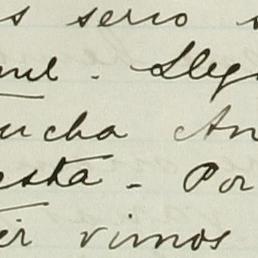 s serio s
Lleg
ucha An
esta - Por
vimos